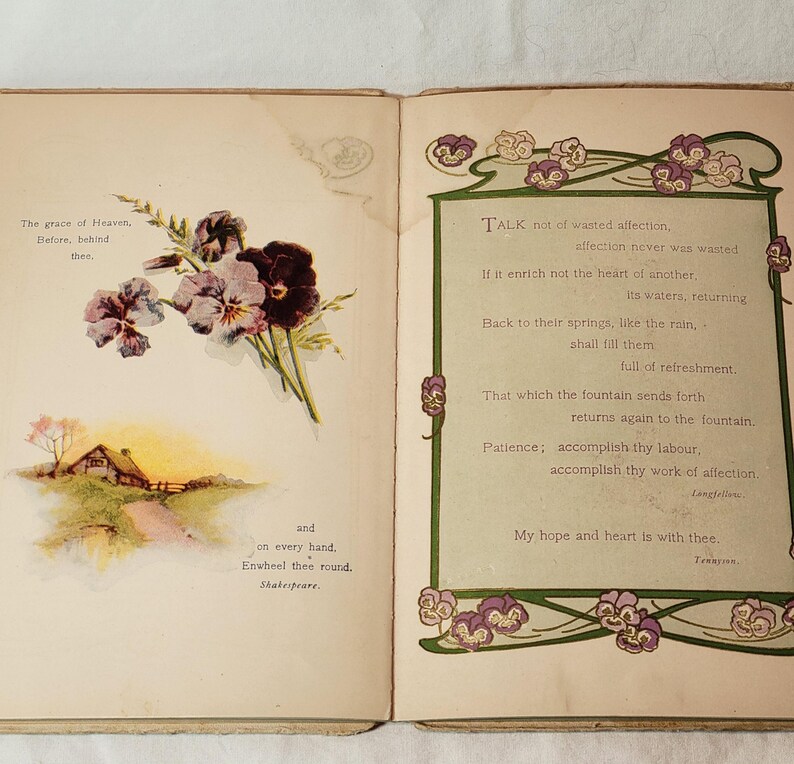 The grace of Heaven,
Before, behind
thee,
and
on every hand,
Enwheel thee round.
Shakespeare.
TALK not of wasted affection,
affection never was wasted
If it enrich not the heart of another,
its waters, returning
Back to their springs, like the rain,
shall fill them
full of refreshment.
That which the fountain sends forth
returns again to the fountain.
Patience; accomplish thy labour,
accomplish thy work of affection.
Longfellow.
My hope and heart is with thee.
Tennyson.